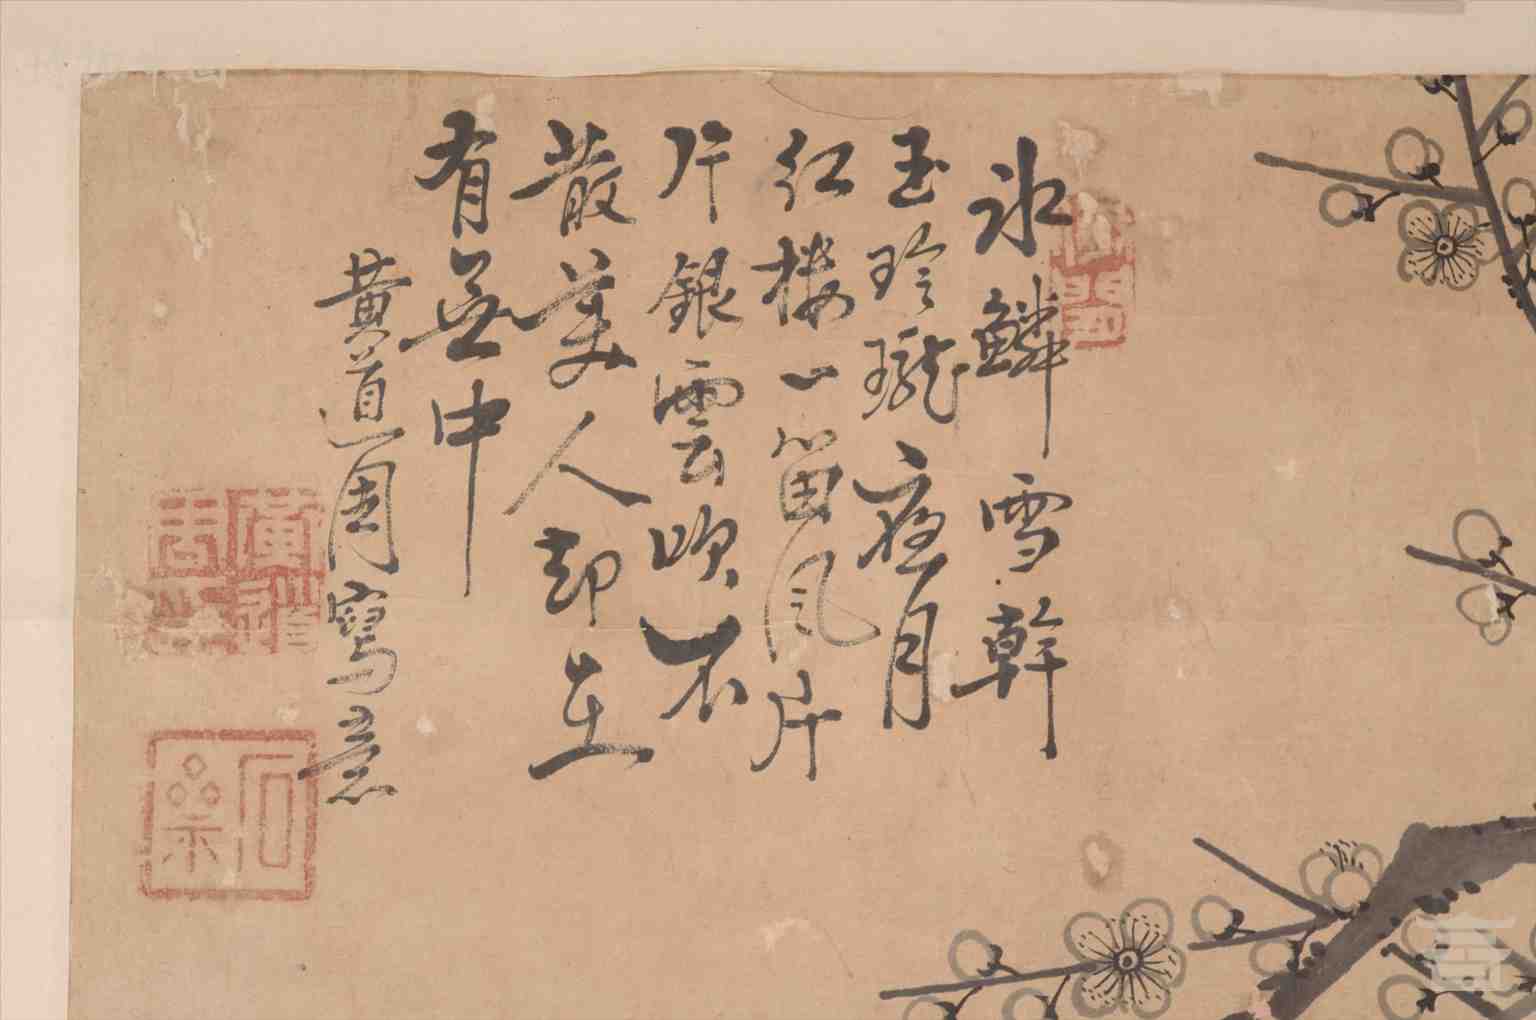 冰鱗雪幹
玉玲瓏夜月
红楼一笛风片
片銀雲吹不
散美人却在
有無中
黄道周寫意